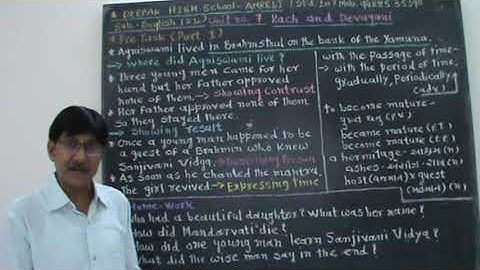 DEEPAK HIGH SCHOOL - AMRELI (Std. 10)
Sub. English (S.L) Unit no. 7 Kach and Devyani
Pre Task (Part 1)
• Agniswami lived in Brahmsthal on the bank of the Yamuna.
→ Where did Agniswami live?
• Three young men came for her
hand but her father approved
none of them. → Showing Contrast
• Her father approved none of them
so they stayed there.
→ Showing result
• Once a young man happened to be
a guest of a Brahmin who knew
Sanjivani Vidya. →
• As soon as he chanted the mantra,
the girl revived → Expressing Time
with the passage of time -
→ with the period of time,
gradually, Periodically
(adv)
to become mature-
(P.V)
became mature (P.T)
become mature
a hermitage - (n)
ashes - (n)
host × guest
(n)
Home-Work
Who had a beautiful daughter? What was her name?
How did Mandarvati die?
How did one young man learn Sanjivani Vidya?
What did the wise man say in the end?